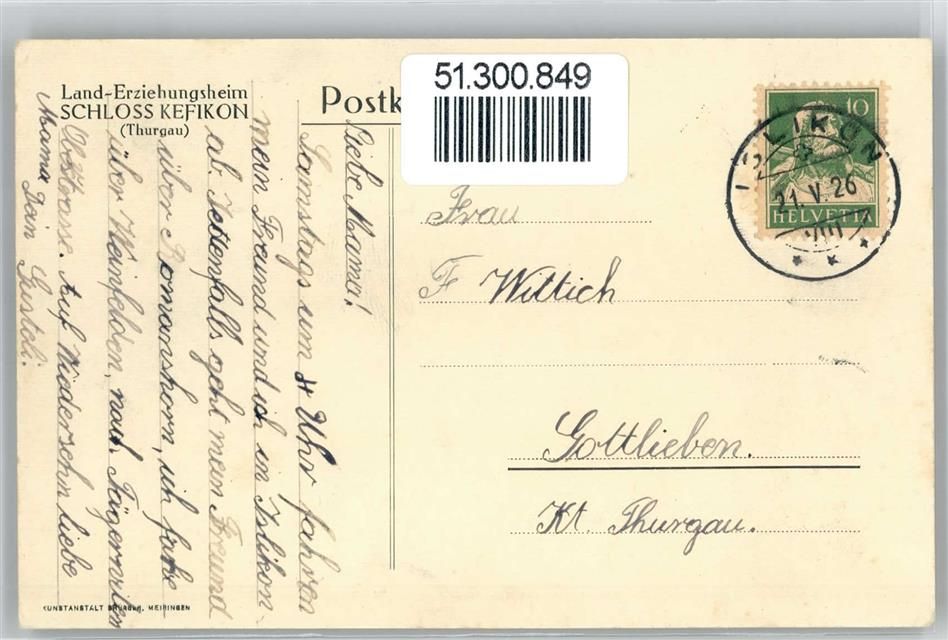 Land-Erziehungsheim
SCHLOSS KEFIKON
(Thurgau)
Postk
51.300.849
10
HELVETIA
ISLIKON
21.V.26
VIII
Frau
F Wittich
Gottlieben.
Kt. Thurgau.
Liebe Mama!
Samstags um 4 Uhr fahren
mein Freund und ich in Islikon
ab. Jettenfalls geht mein Freund
über Romanshorn, ich fahre
über Weinfelden, nach Tägerwilen
Auf Wiedersehn liebe
Mama Dein Gustoli.
KUNSTANSTALT BRÜGGER, MEIRINGEN